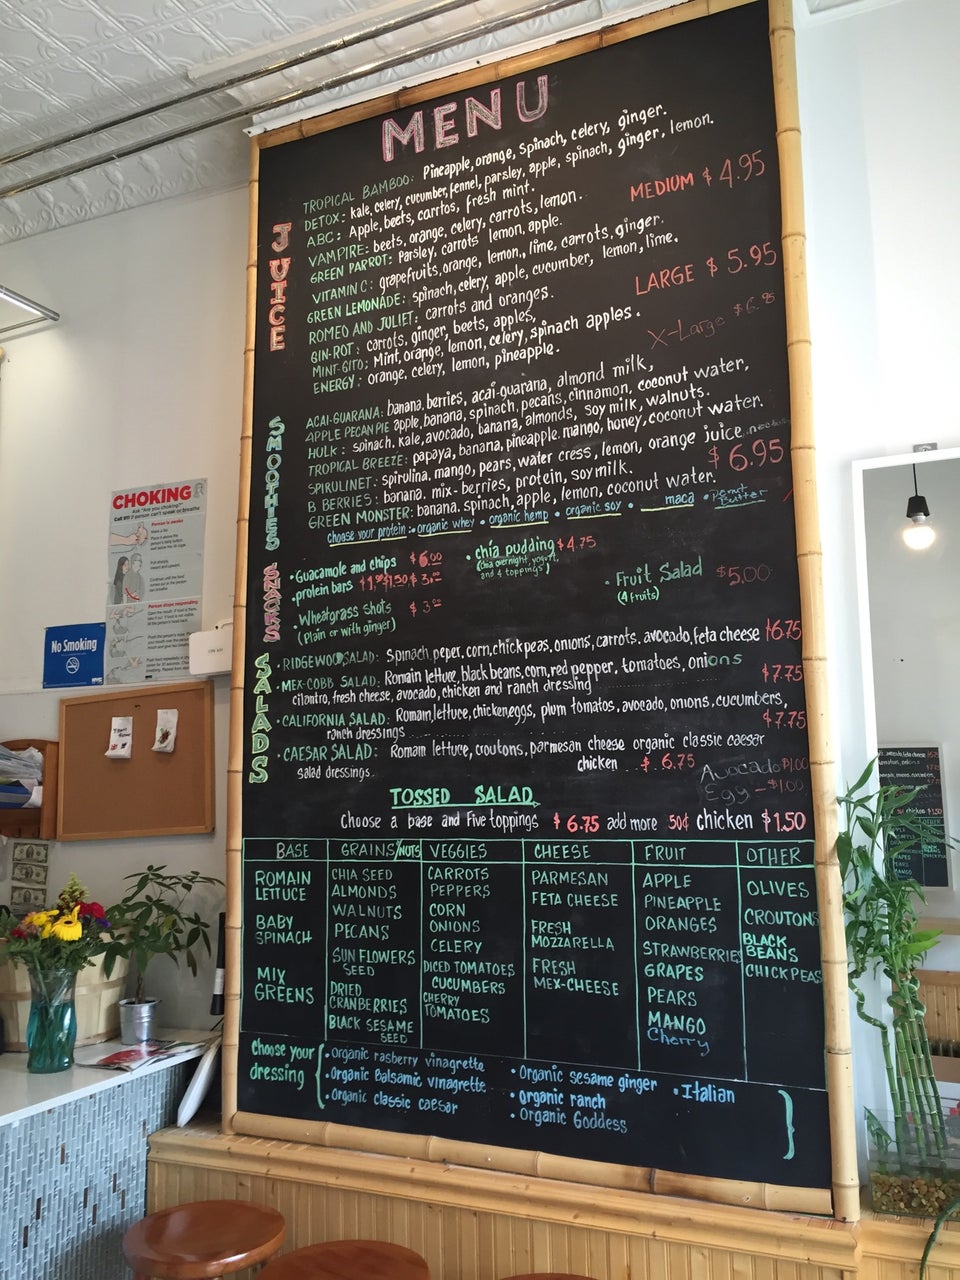 MENU
JUICE
TROPICAL BAMBOO: Pineapple, orange, spinach, celery, ginger.
DETOX: kale, celery, cucumber, fennel, parsley, apple, spinach, ginger, lemon.
ABC: Apple, beets, carrtos, fresh mint.
VAMPIRE: beets, orange, celery, carrots, lemon.
GREEN PARROT: Parsley, carrots lemon, apple.
VITAMIN C: grapefruits, orange, lemon,, lime, carrots, ginger.
GREEN LEMONADE: spinach, celery, apple, cucumber, lemon, lime.
ROMEO AND JULIET: carrots and oranges.
GIN-ROT: carrots, ginger, beets, apples,
MINT-GITO: Mint, orange, lemon, celery, spinach apples.
ENERGY: orange, celery, lemon, pineapple.
MEDIUM $ 4.95
LARGE $ 5.95
X-Large $6.95
SMOOTHIES
ACAI-GUARANA: banana, berries, acai-guarana, almond milk,
APPLE PECAN PIE apple, banana, spinach, pecans, cinnamon, coconut water,
HULK: spinach, kale, avocado, banana, almonds, soy milk, walnuts.
TROPICAL BREEZE: papaya, banana, pineapple. mango, honey, coconut water.
SPIRULINET: spirulina, mango, pears, water cress, lemon, orange juice,
B BERRIES: banana. mix-berries, protein, soy milk.
GREEN MONSTER: banana. spinach, apple, lemon, coconut water.
$6.95
choose your protein: • organic whey • organic hemp • organic soy • maca • Penut Butter
SNACKS
• Guacamole and chips $6.00
• protein bars
• Wheatgrass shots $3.00
(Plain or with ginger)
• chía pudding $4.75
(chia overnight, yogurt,
and 4 toppings)
• Fruit Salad $5.00
(4 fruits)
SALADS
• RIDGEWOOD SALAD: Spinach, peper, corn, chickpeas, onions, carrots, avocado, feta cheese $6.75
• MEX-COBB SALAD: Romain lettuce, black beans, corn, red pepper, tomatoes, onions
cilantro, fresh cheese, avocado, chicken and ranch dressing $7.75
• CALIFORNIA SALAD: Romain, lettuce, chicken, eggs, plum tomatos, avocado, onions, cucumbers,
ranch dressings $7.75
• CAESAR SALAD: Romain lettuce, croutons, parmesan cheese organic classic caesar
salad dressings chicken $6.75
Avocado $1.00
Egg - $1.00
TOSSED SALAD
Choose a base and Five toppings $6.75 add more 50¢ chicken $1.50
BASE
ROMAIN
LETTUCE
BABY
SPINACH
MIX
GREENS
GRAINS/NUTS
CHIA SEED
ALMONDS
WALNUTS
PECANS
SUN FLOWERS
SEED
DRIED
CRANBERRIES
BLACK SESAME
SEED
VEGGIES
CARROTS
PEPPERS
CORN
ONIONS
CELERY
DICED TOMATOES
CUCUMBERS
CHERRY
TOMATOES
CHEESE
PARMESAN
FETA CHEESE
FRESH
MOZZARELLA
FRESH
MEX-CHEESE
FRUIT
APPLE
PINEAPPLE
ORANGES
STRAWBERRIES
GRAPES
PEARS
MANGO
Cherry
OTHER
OLIVES
CROUTONS
BLACK
BEANS
CHICKPEAS
choose your
dressing
• Organic rasberry vinagrette
• Organic Balsamic vinagrette
• Organic classic caesar
• Organic sesame ginger
• organic ranch
• Organic Goddess
• Italian
CHOKING
Ask "Are you choking?"
No Smoking